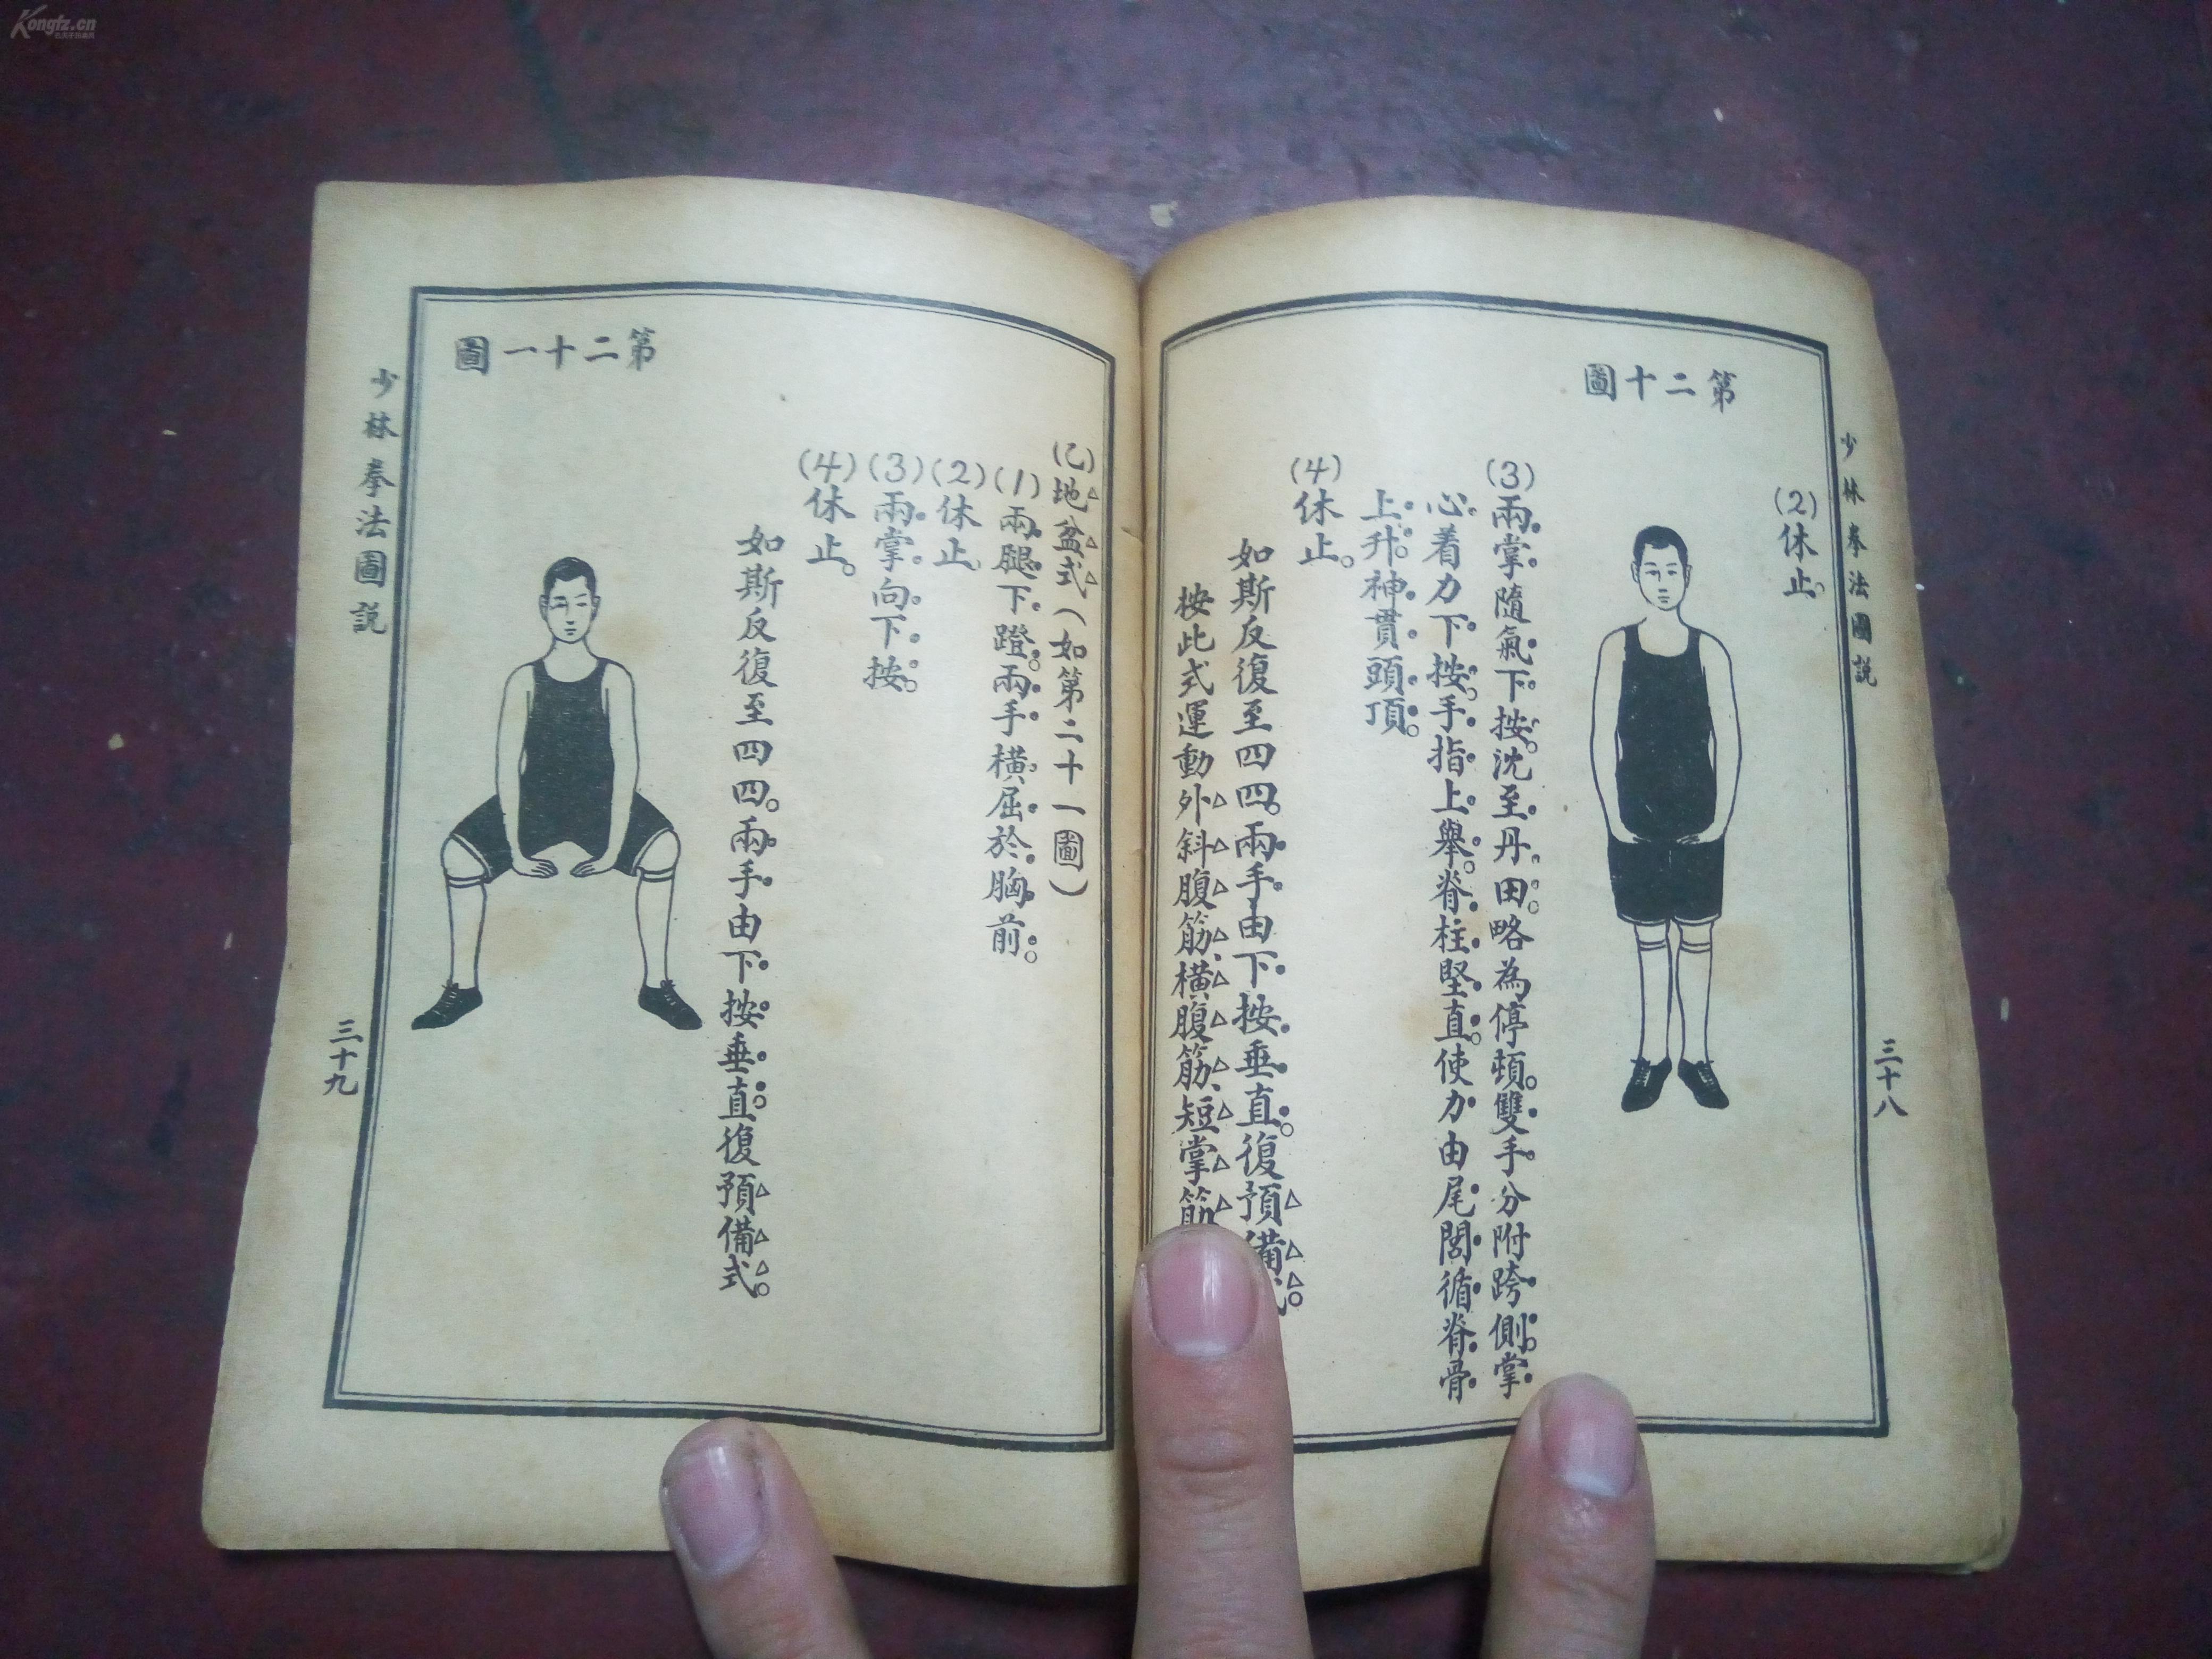 Kongfz.cn
少林拳法圖説
三十八
第二十圖
(2)休止。
(3)兩掌隨氣下按。沈至丹田。略為停頓。雙手分附跨側。掌
心着力下按。手指上舉。脊柱堅直。使力由尾閭循脊骨
上升。神貫頭頂。
(4)休止。
如斯反復至四四。兩手由下按垂直。復預備
按此式運動外斜腹筋、橫腹筋、短掌筋
(乙)地盆式(如第二十一圖)
(1)兩腿下蹬。兩手橫屈於胸前。
(2)休止。
(3)兩掌向下按。
(4)休止。
如斯反復至四四。兩手由下按垂直。復預備式。
第二十一圖
少林拳法圖説
三十九